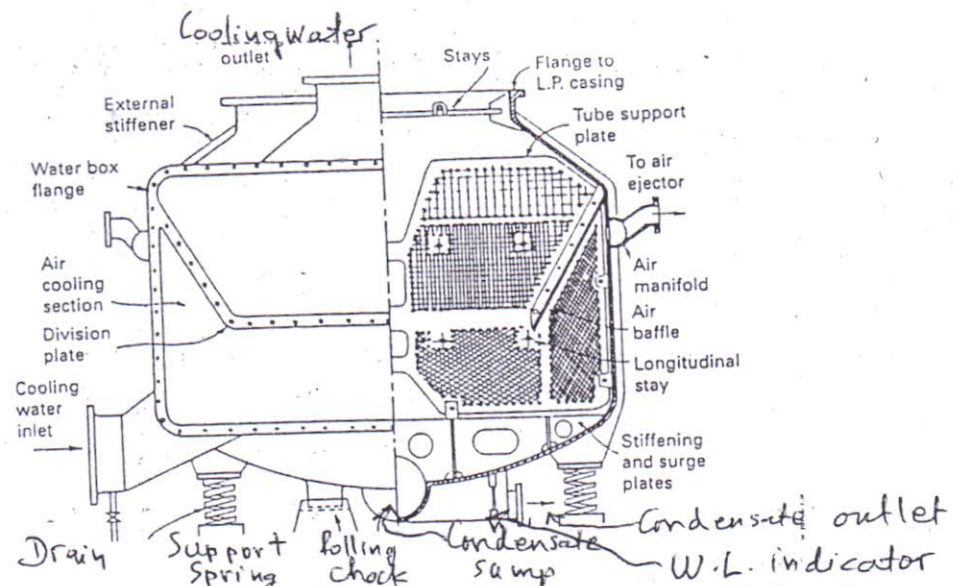 Cooling water
outlet
Stays
Flange to
L.P. casing
External
stiffener
Tube support
plate
Water box
flange
To air
ejector
Air
cooling
section
Air
manifold
Division
plate
Air
baffle
Longitudinal
stay
Cooling
water
inlet
Stiffening
and surge
plates
Drain
Support
Spring
Rolling
chock
Condensate
sump
Condensate outlet
W.L. indicator